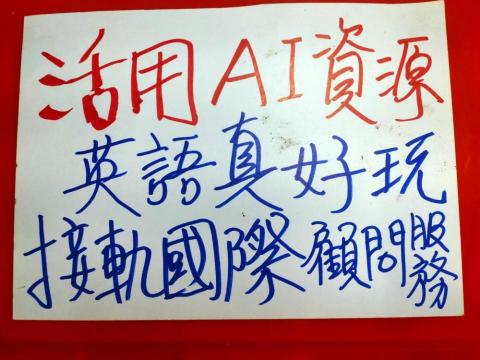 活用AI資源
英語真好玩
接軌國際顧問服務